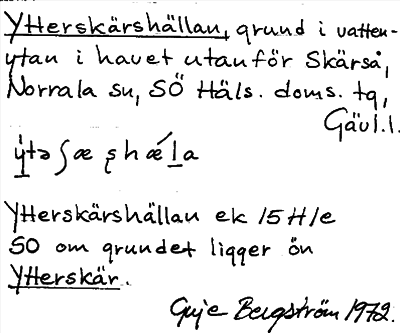 Ytterskärshällan, grund i vatten-
ytan i havet utanför Skärså,
Norrala sn, SÖ Häls. doms. tg,
Gävl.l.
Ytterskärshällan ek 15H1e
SO om grundet ligger ön
Ytterskär.
Guje Bergström 1972.